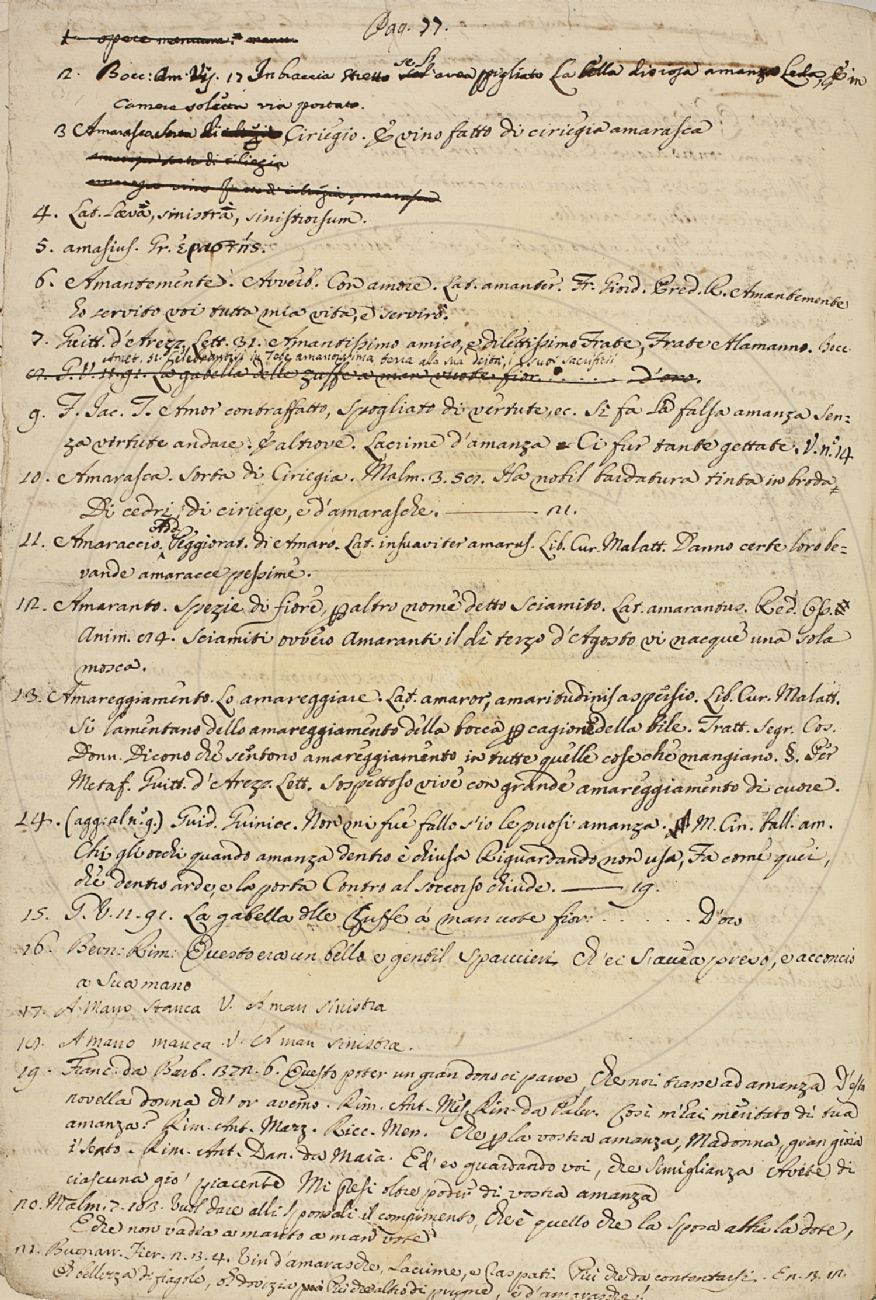 Pag. 77.
2. Bocc: Am. Vis. 17 In braccia stretto se l'avea pigliato La bella dioiosa amanza Leda, e in
camera soletta via portato.
3 Amarasca Ciriegio. E vino fatto di ciriegia amarasca
4. Lat. Læva, sinistra, sinistrorsum.
5. amasius. Gr.
6. Amantemente. Avverb. Con amore. Lat. amanter. Fr. Giord. Pred. R. Amantemente
ho servito voi tutta mia vita, e servirò.
7. Guitt. d'Arezz. Lett. 31. Amantissimo amico, e dilettissimo Frate, Frate Alamanno. Bocc
Amet. 51. in Tebe amantissima terra alla sua deità, i suoi sacrificii
G. V. 11. 91. La gabella delle zuffe a man vuote fior. . . . . . . D'oro.
9. F. Jac. T. Amor contraffatto, spogliato di vertute, ec. Si fa la falsa amanza sen-
za virtute andare. E altrove. Lacrime d'amanza Ci fur tante gettate. V. n.º 14
10. Amarasca. Sorta di Ciriegia. Malm. 3. 58. Ha nobil bardatura tinta in broda,
Di cedri, di ciriege, e d'amarasche. ——— 21.
11. Amaraccio. Add. Peggiorat. di Amaro. Lat. insuaviter amarus. Lib. Cur. Malatt. Danno certe loro be-
vande amaracce pessime.
12. Amaranto. Spezie di fiore, p altro nome detto Sciamito. Lat. amarantus. Red. Esp.
Anim. 84. Sciamiti ovvero Amaranti il dì terzo d'Agosto vi nacque una sola
mosca.
13. Amareggiamento. Lo amareggiare. Lat. amaror, amaritudinis aspersio. Lib. Cur. Malatt.
Si lamentano dello amareggiamento della bocca p cagione della bile. Tratt. Segr. Cos.
Donn. Dicono che sentono amareggiamento in tutte quelle cose che mangiano. §. Per
Metaf. Guitt. d'Arezz. Lett. Sospettoso vive con grande amareggiamento di cuore.
14. (agg: al n.º 9.) Guid. Guinicc. Non mi fue fallo s'io le puosi amanza. M. Cin. ball. am.
Chi gli occhi quando amanza dentro è chiusa Riguardando non usa, Fa come quei,
che dentro arde, e la porta Contro al soccorso chiude. —— 19.
15. G. V. 11. 91. La gabella dlle Zuffe a man vote fior: . . . . . . D'oro
16. Bern: Rim: Questo era un bello, e gentil spaccieri Ch'ei s'avea preso, e acconcio
a sua mano
17. A Mano stanca V. A man sinistra
18. A mano manca. V. A man sinistra.
19. Franc. da Barb. 132. 6. Questo poter un gran dono ci parve, Che noi trasse ad amanza D'esta
novella donna ch'or avemo. Rim. Ant. Mes. Rin. da Paler. Così m'hai meritato di tua
amanza? Rim. Ant. Marz. Ricc. Men. Che p la vostra amanza, Madonna, gran gioia
i' sento. Rim. Ant. Dan. da Maia. Ed eo guardando voi, che simiglianza Avete di
ciascuna gio' piacente Mi presi oltre poder di vostra amanza
20. Malm. 7. 103. Vuol dare alli sponsali il compimento, Ch'è quello che la sposa abbia la dote,
E che non vada a marito a man vote
21. Buonarr. Fier. 2. 3. 4. Vin d'amarasche, Lacrime, e raspati. Più che da contentarsi. E 2. 3. 12.
Oh bellezza di fragole, oh dovizia Più che altro di prugne, e d'amarasche!